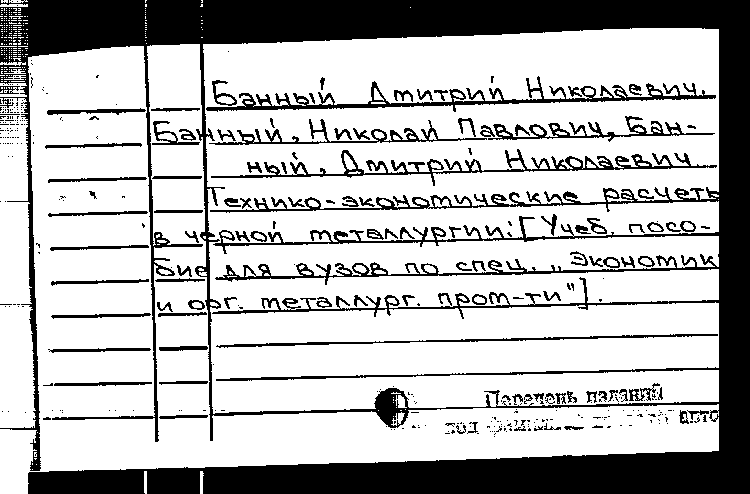 Банный Дмитрий Николаевич.
Банный, Николай Павлович, Бан-
ный, Дмитрий Николаевич
Технико-экономические расчеты
в черной металлургии: [Учеб. посо-
бие для вузов по спец. „экономик
и орг. металлург. пром-ти"].
Перечень изданий
под